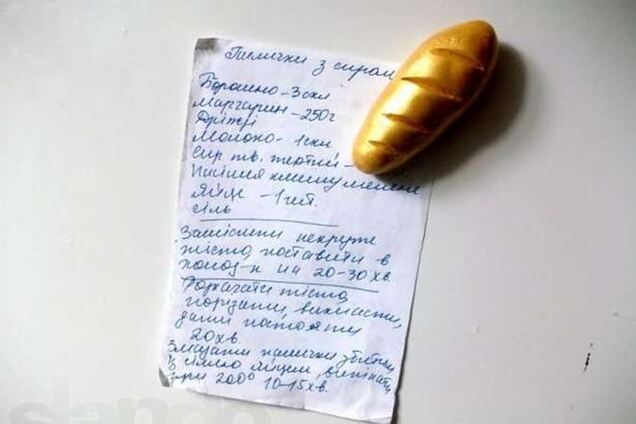 Палички з сиром
Борошно - 3 скл
Маргарин - 250г
Дріжджі
Молоко - 1 скл
Сир тв. тертий -
Насіння кмину мелене
Яйце - 1 шт.
сіль
Замісити некруте
тісто, поставити в
холод-к на 20-30 хв.
Розкачати тісто,
порізати, викласти,
дати постояти
20 хв.
Змазати палички збитим
з сіллю яйцем, випікати
при 200° 10-15 хв.
slando